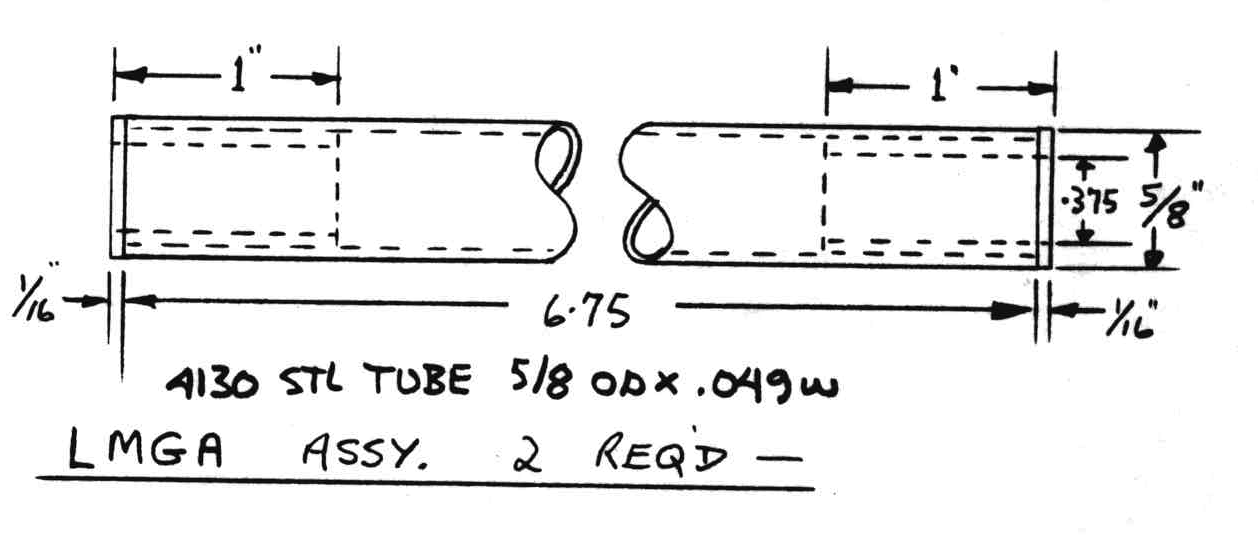 1" 1"
.375 5/8"
1/16" 6.75 1/16"
4130 STL TUBE 5/8 OD X .049W
LMGA ASSY. 2 REQ'D —